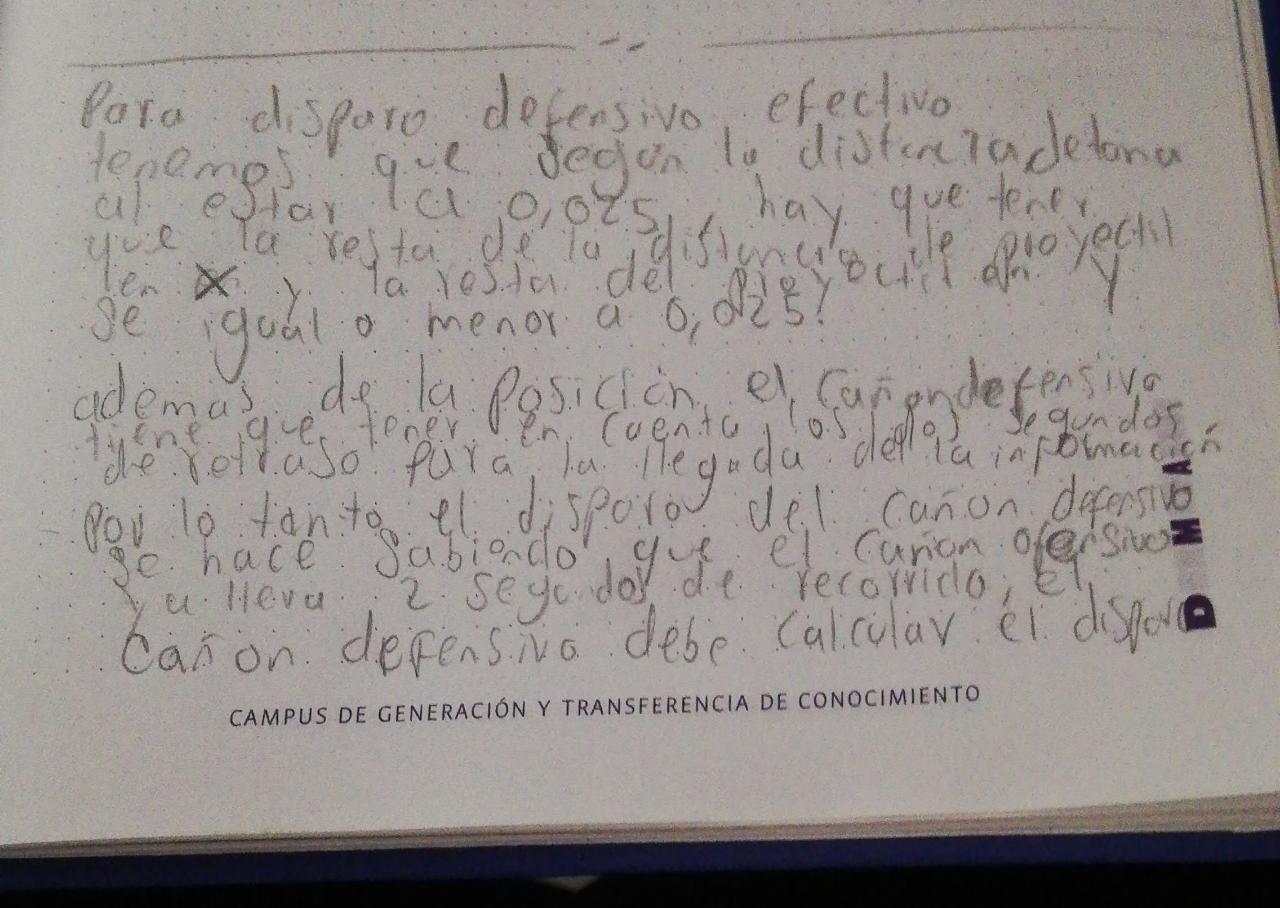 Para disparo defensivo efectivo
tenemos que según la distancia detona
al estar a 0,025, hay que tener
que la resta de la distancia de proyectil
en X y la resta del proyectil en Y
se igual o menor a 0,025!
ademas de la posición el cañon defensivo
tiene que tener en cuenta los dos segundos
de retraso para la llegada de la información
Por lo tanto el disparo del cañon defensivo
se hace sabiendo que el cañon ofensivo
ya lleva 2 segundos de recorrido, el
cañon defensivo debe calcular el disparo
CAMPUS DE GENERACIÓN Y TRANSFERENCIA DE CONOCIMIENTO